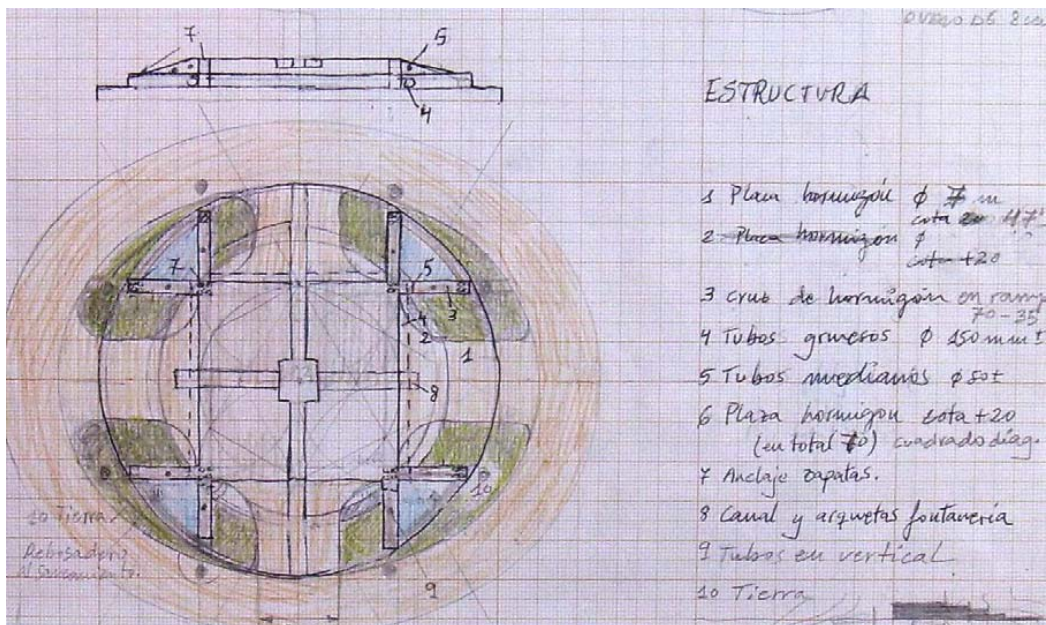 7
5
4
ESTRUCTURA
1 Placa hormigón ϕ 7 m
cota
2 Placa hormigón ϕ
cota +20
3 cruz de hormigón en rampa
70-35
4 Tubos gruesos ϕ 150 mm ±
5 Tubos medianos ϕ 50±
6 Plaza hormigon cota +20
(en total 70) cuadrado diag.
7 Anclaje zapatas.
8 Canal y arquetas fontanería
9 Tubos en vertical
10 Tierra
7
5
4
3
2
1
8
10
10 Tierra
Rebosadero
9